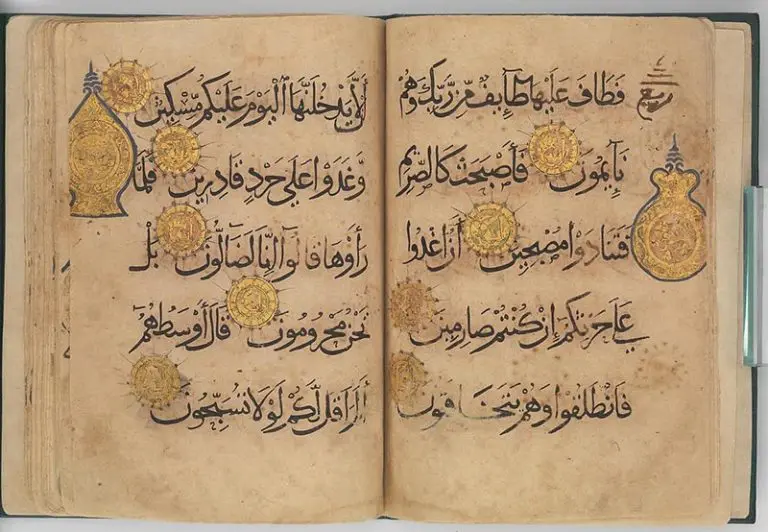 فَطَافَ عَلَيْهَا طَآيِفٌ مِّن رَّبِّكَ وَهُمْ
نَآيِمُونَ فَأَصْبَحَتْ كَالصَّرِيمِ
فَتَنَادَوْا مُصْبِحِينَ أَنِ اغْدُوا
عَلَي حَرْثِكُمْ إِنْ كُنْتُمْ صَارِمِينَ
فَانْطَلَقُوا وَهُمْ يَتَخَافَتُونَ
أَلَّا يَدْخُلَنَّهَا الْيَوْمَ عَلَيْكُمْ مِّسْكِينٌ
وَّغَدَوْا عَلَي حَرْدٍ قَادِرِينَ فَلَمَّا
رَأَوْهَا قَالُوا إِنَّا لَضَالُّونَ بَلْ
نَحْنُ مَحْرُومُونَ قَالَ أَوْسَطُهُمْ
أَلَمْ أَقُل لَّكُمْ لَوْلَا تُسَبِّحُونَ